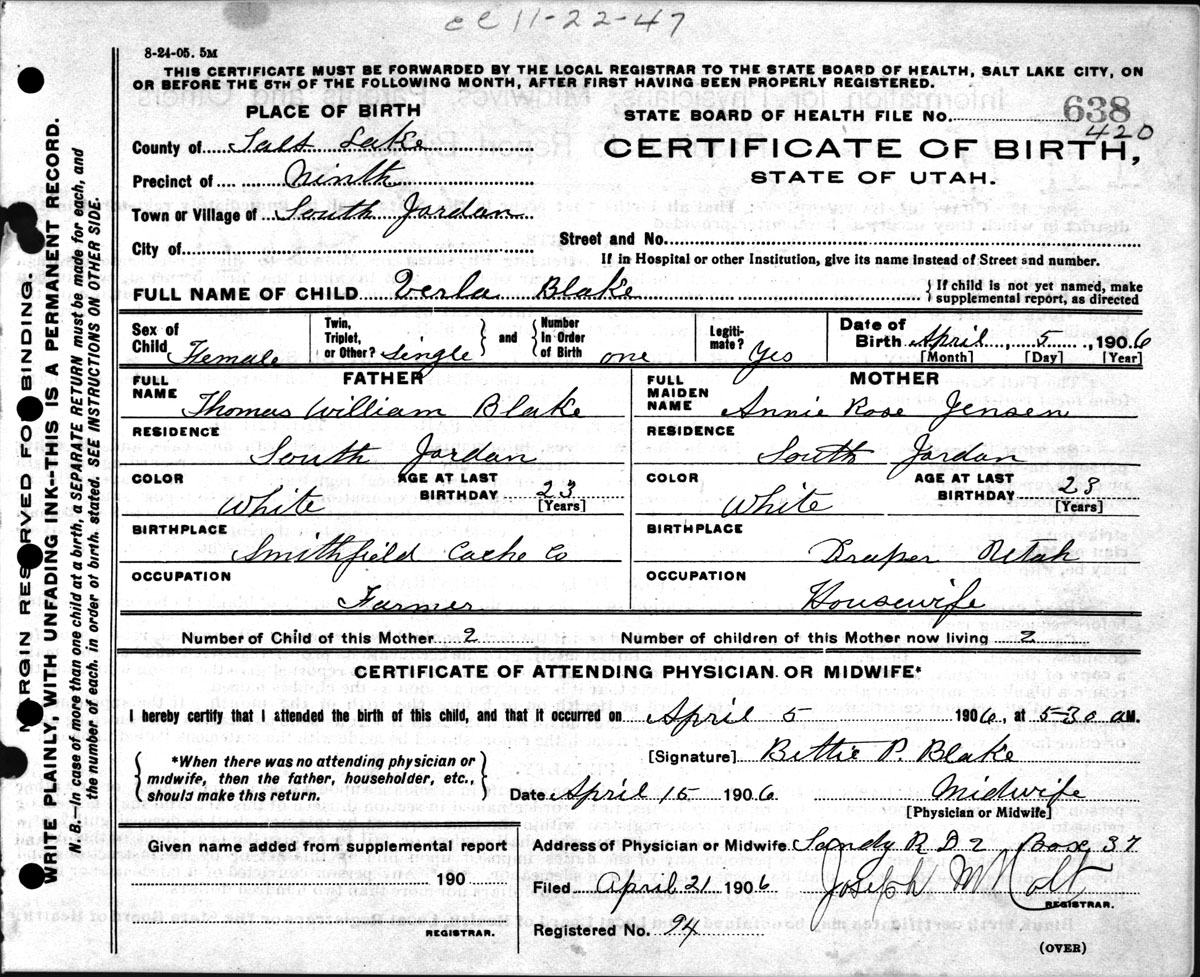 cc 11-22-47
8-24-05. 5M
THIS CERTIFICATE MUST BE FORWARDED BY THE LOCAL REGISTRAR TO THE STATE BOARD OF HEALTH, SALT LAKE CITY, ON
OR BEFORE THE 5TH OF THE FOLLOWING MONTH, AFTER FIRST HAVING BEEN PROPERLY REGISTERED.
PLACE OF BIRTH
STATE BOARD OF HEALTH FILE No. 638
420
County of Salt Lake
CERTIFICATE OF BIRTH,
STATE OF UTAH.
Precinct of Ninth
Town or Village of South Jordan
City of
Street and No.
If in Hospital or other Institution, give its name instead of Street and number.
FULL NAME OF CHILD Verla Blake
{If child is not yet named, make
supplemental report, as directed
Sex of
Child Female
Twin,
Triplet,
or Other? Single
and
Number
In Order
of Birth one
Legiti-
mate? Yes
Date of
Birth April 5, 1906
[Month] [Day] [Year]
FATHER
FULL
NAME Thomas William Blake
RESIDENCE
South Jordan
COLOR White
AGE AT LAST
BIRTHDAY 23
[Years]
BIRTHPLACE
Smithfield Cache Co
OCCUPATION
Farmer
MOTHER
FULL
MAIDEN
NAME Annie Rose Jensen
RESIDENCE
South Jordan
COLOR White
AGE AT LAST
BIRTHDAY 23
[Years]
BIRTHPLACE
Draper Utah
OCCUPATION
Housewife
Number of Child of this Mother 2
Number of children of this Mother now living 2
CERTIFICATE OF ATTENDING PHYSICIAN OR MIDWIFE*
I hereby certify that I attended the birth of this child, and that it occurred on April 5 1906, at 5-30 a M.
*When there was no attending physician or
midwife, then the father, householder, etc.,
should make this return.
[Signature] Bettie P. Blake
Date April 15 1906
Midwife
[Physician or Midwife]
Given name added from supplemental report
190
REGISTRAR.
Address of Physician or Midwife Sandy R D 2 Box 37
Filed April 21 1906
Joseph M Holt
REGISTRAR.
Registered No. 94
(OVER)
MARGIN RESERVED FOR BINDING.
WRITE PLAINLY, WITH UNFADING INK--THIS IS A PERMANENT RECORD.
N. B.—In case of more than one child at a birth, a SEPARATE RETURN must be made for each, and
the number of each, in order of birth, stated. SEE INSTRUCTIONS ON OTHER SIDE.